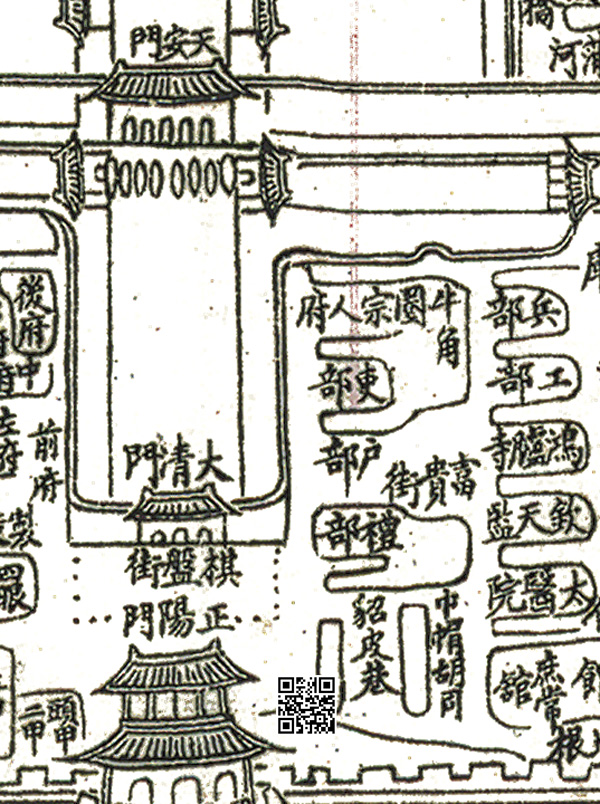 天安門
牛角圈
宗人府
兵部
後府
吏部
工部
戶部
鴻臚寺
前府
大清門
富貴街
禮部
欽天監
棋盤街
太醫院
正陽門
貂皮巷
巾帽胡同
庶常館
頭甲
二甲